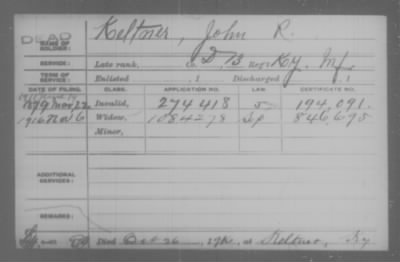 Keltner, John R.
DEAD
NAME OF SOLDIER:
SERVICE: Late rank, Co. D, 13 Reg't Ky. Inf.
TERM OF SERVICE: Enlisted , 1 Discharged , 1
DATE OF FILING. CLASS. APPLICATION NO. LAW. CERTIFICATE NO.
1879 Mar 22 Invalid, 274418 194,091.
1916 Nov 6 Widow, 1084278 846,695
Minor,
ADDITIONAL SERVICES:
REMARKS:
Died Oct 26, 191 , at Keltner, Ky